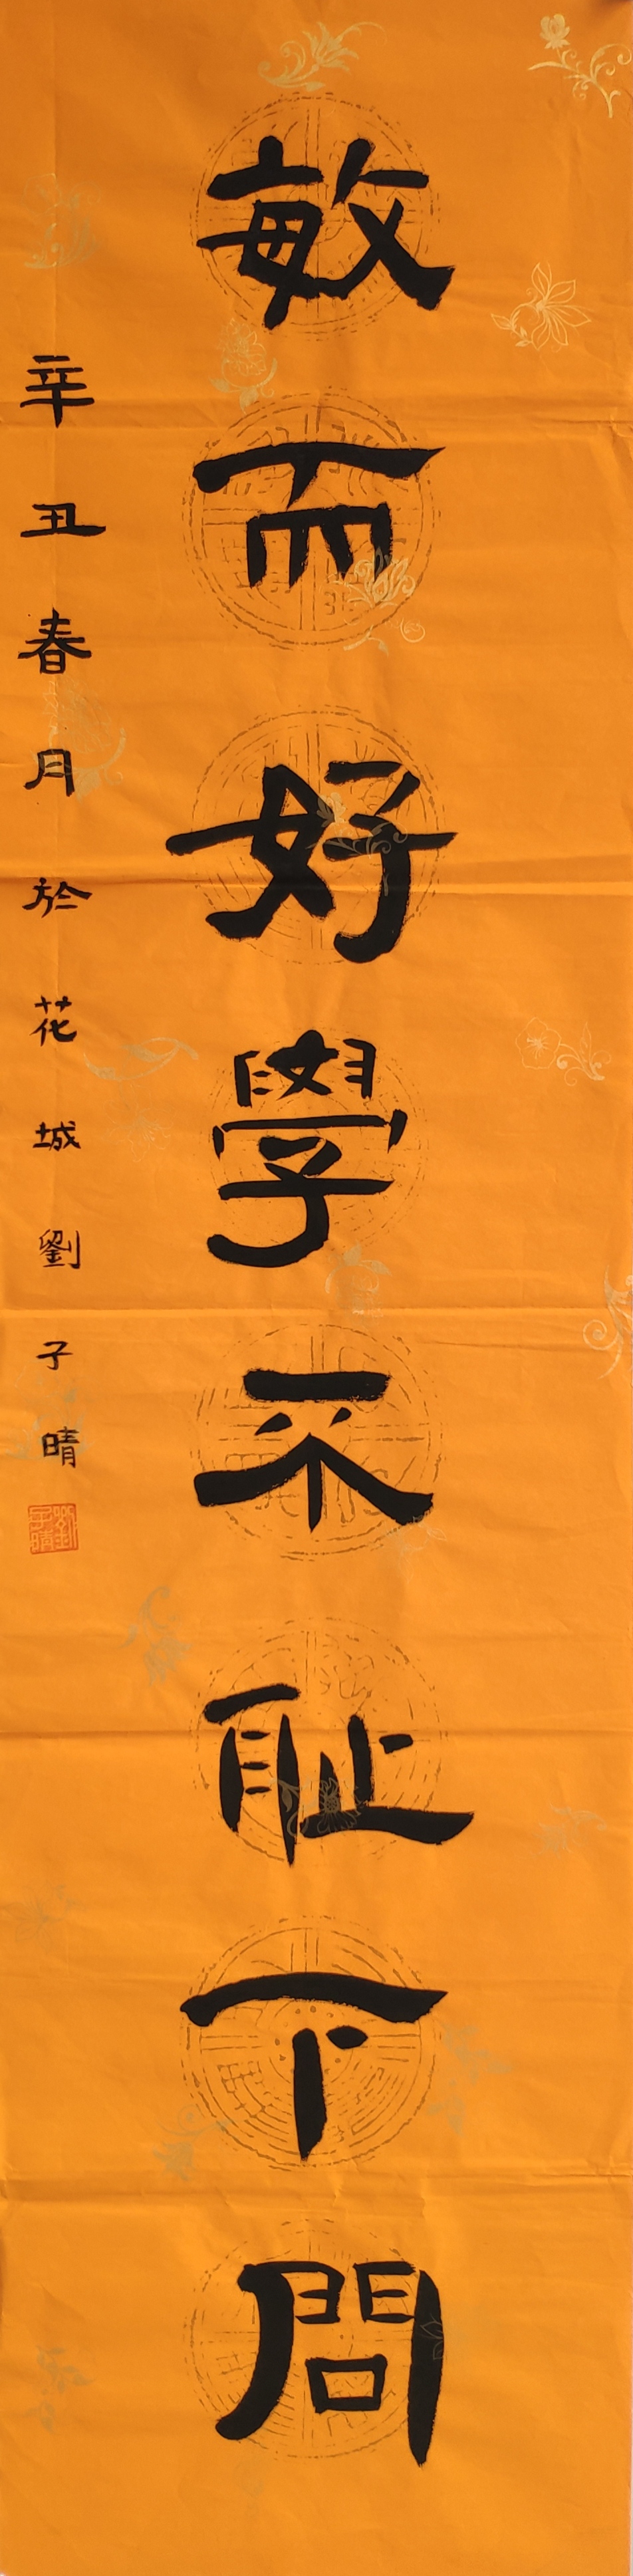 敏而好學不耻下問
辛丑春月於花城劉子晴
劉子晴